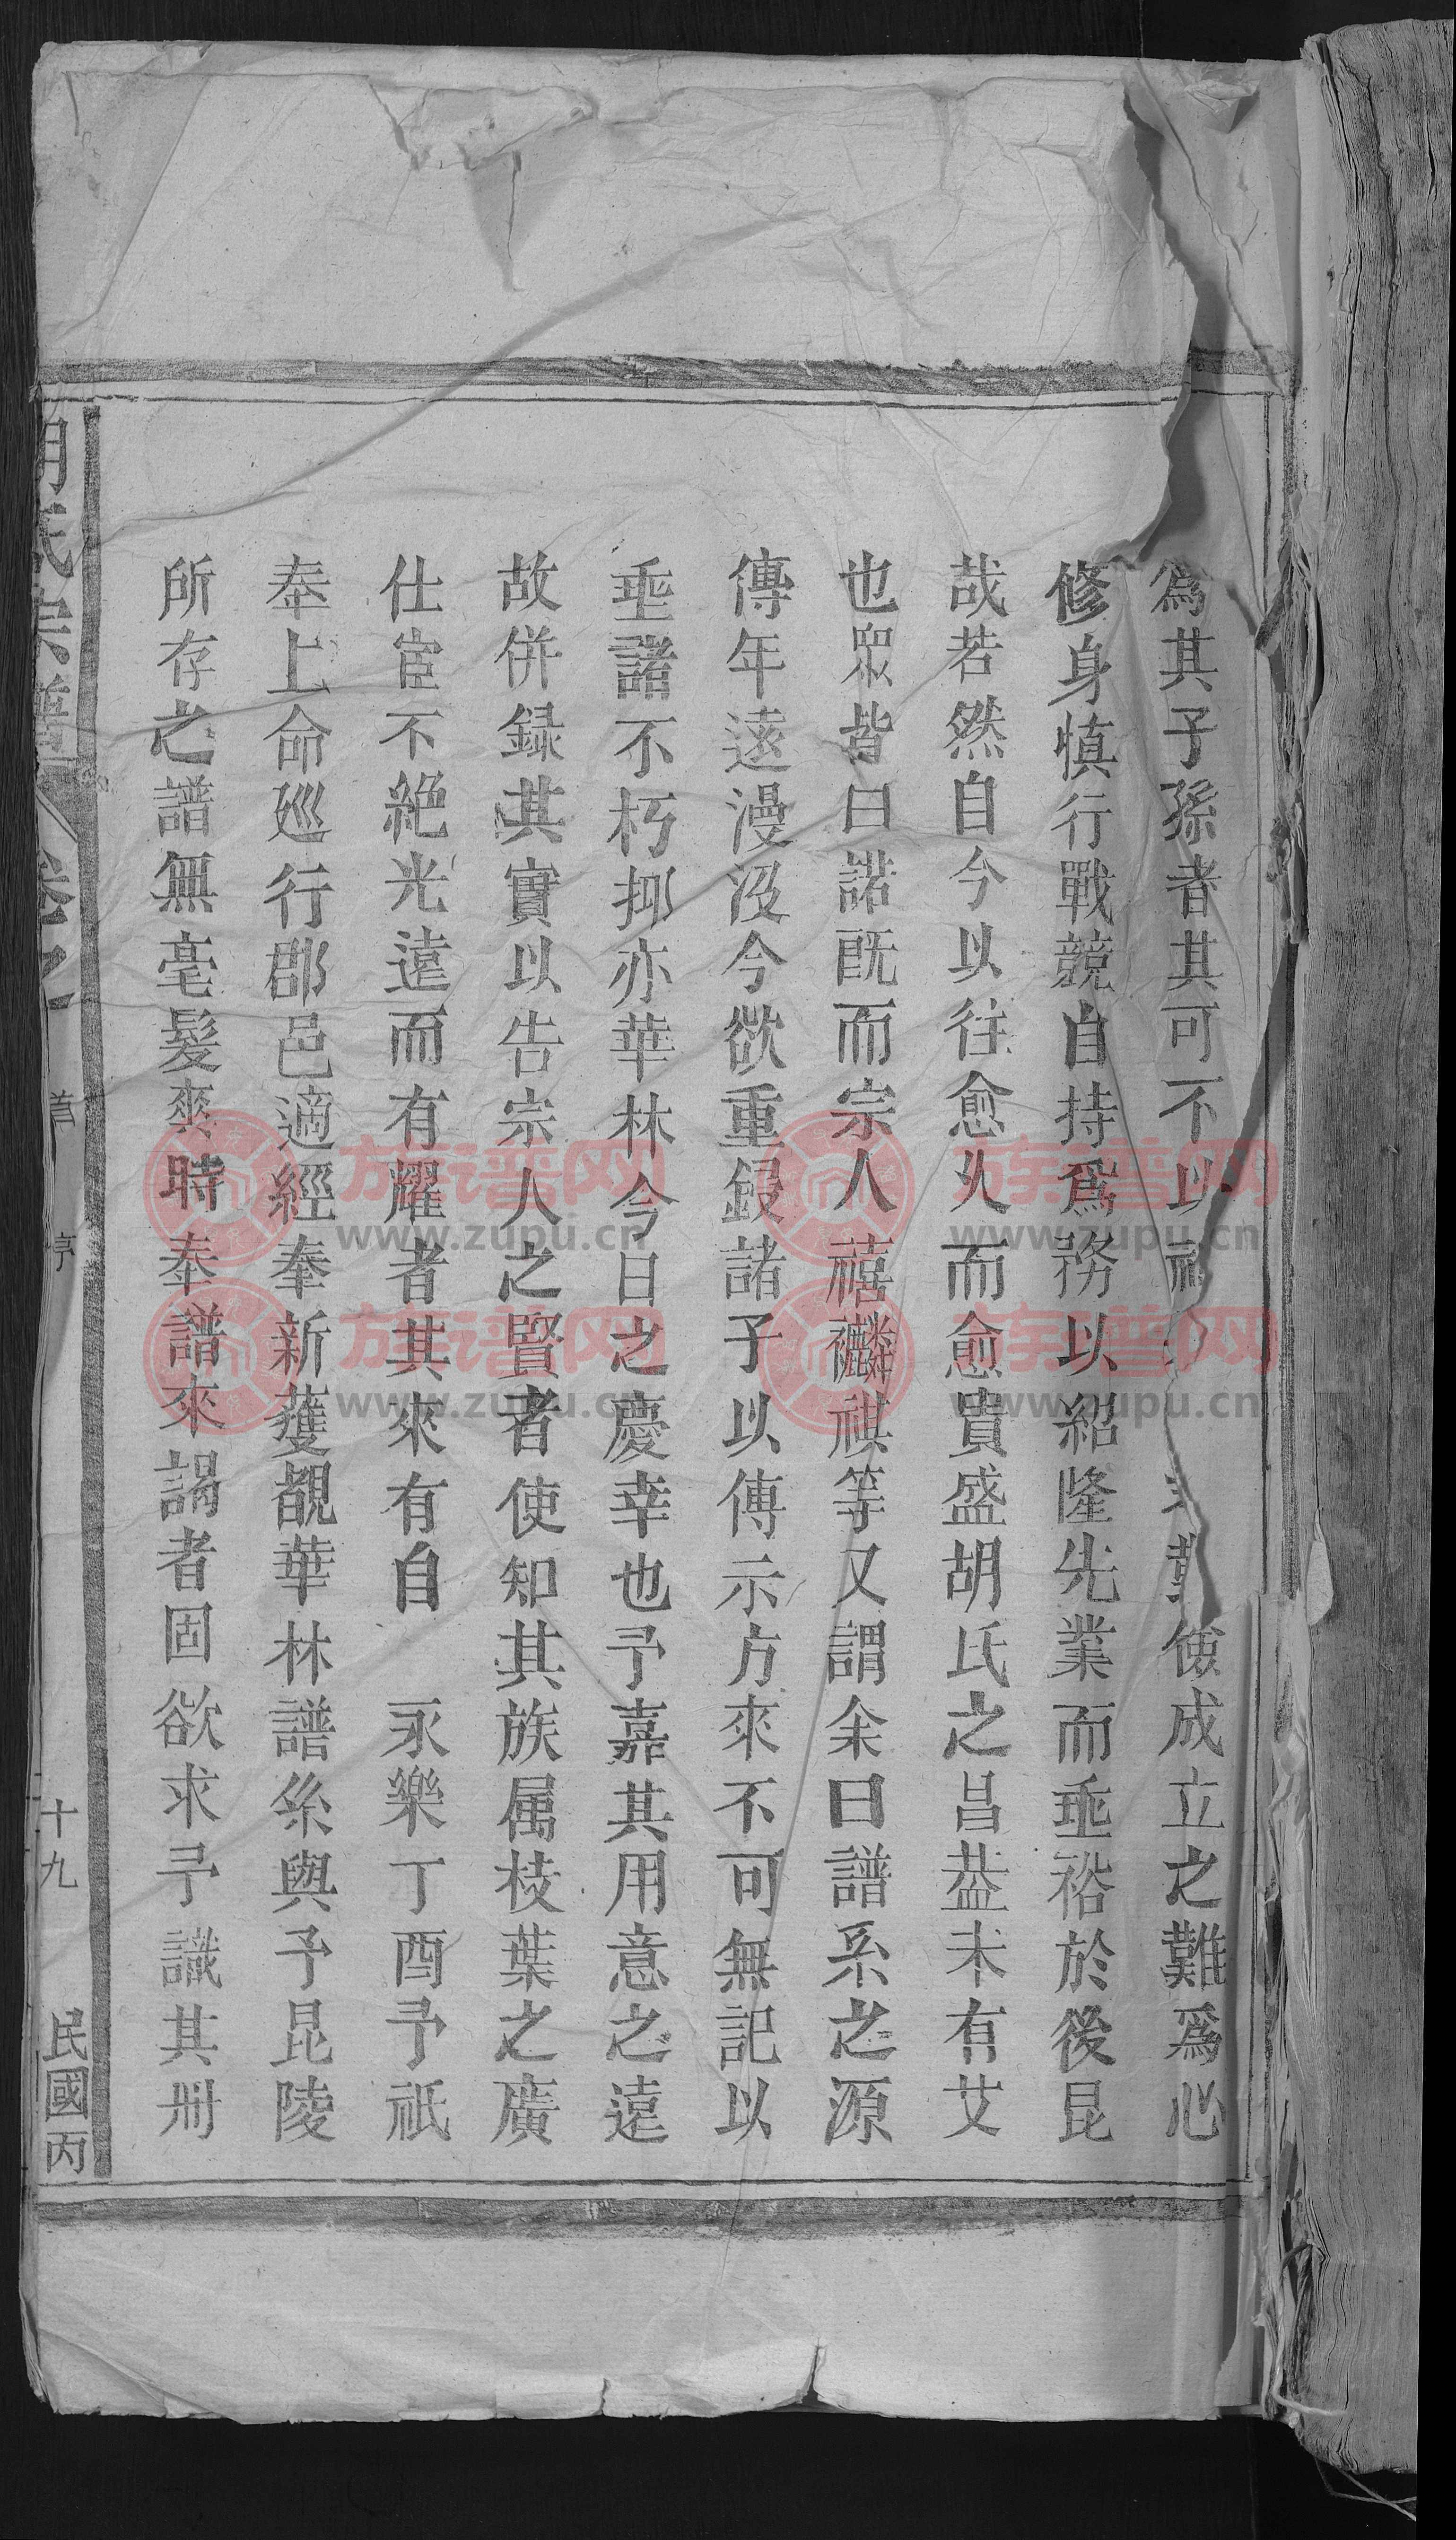 為其子孫者其可不以成立之難爲心
修身慎行戰兢自持爲務以紹隆先業而垂裕於後昆
哉若然自今以往愈久而愈貴盛胡氏之昌葢未有艾
也眾皆曰諾既而宗人禧禩祺等又謂余曰譜系之源
傳年遠漫沒今欲重鋟諸子以傳示方來不可無記以
垂諸不朽抑亦華林今日之慶幸也予嘉其用意之遠
故併録其實以告宗人之賢者使知其族属枝葉之廣
仕宦不絶光遠而有耀者其來有自 永樂丁酉予祇
奉上命廵行郡邑適經奉新獲覩華林譜系與予昆陵
所存之譜無毫髮爽時奉譜來謁者固欲求予識其册
胡氏宗譜 卷之 首序 十九 民國丙
族谱网
www.zupu.cn
族谱网
www.zupu.cn
族谱网
www.zupu.cn
族谱网
www.zupu.cn